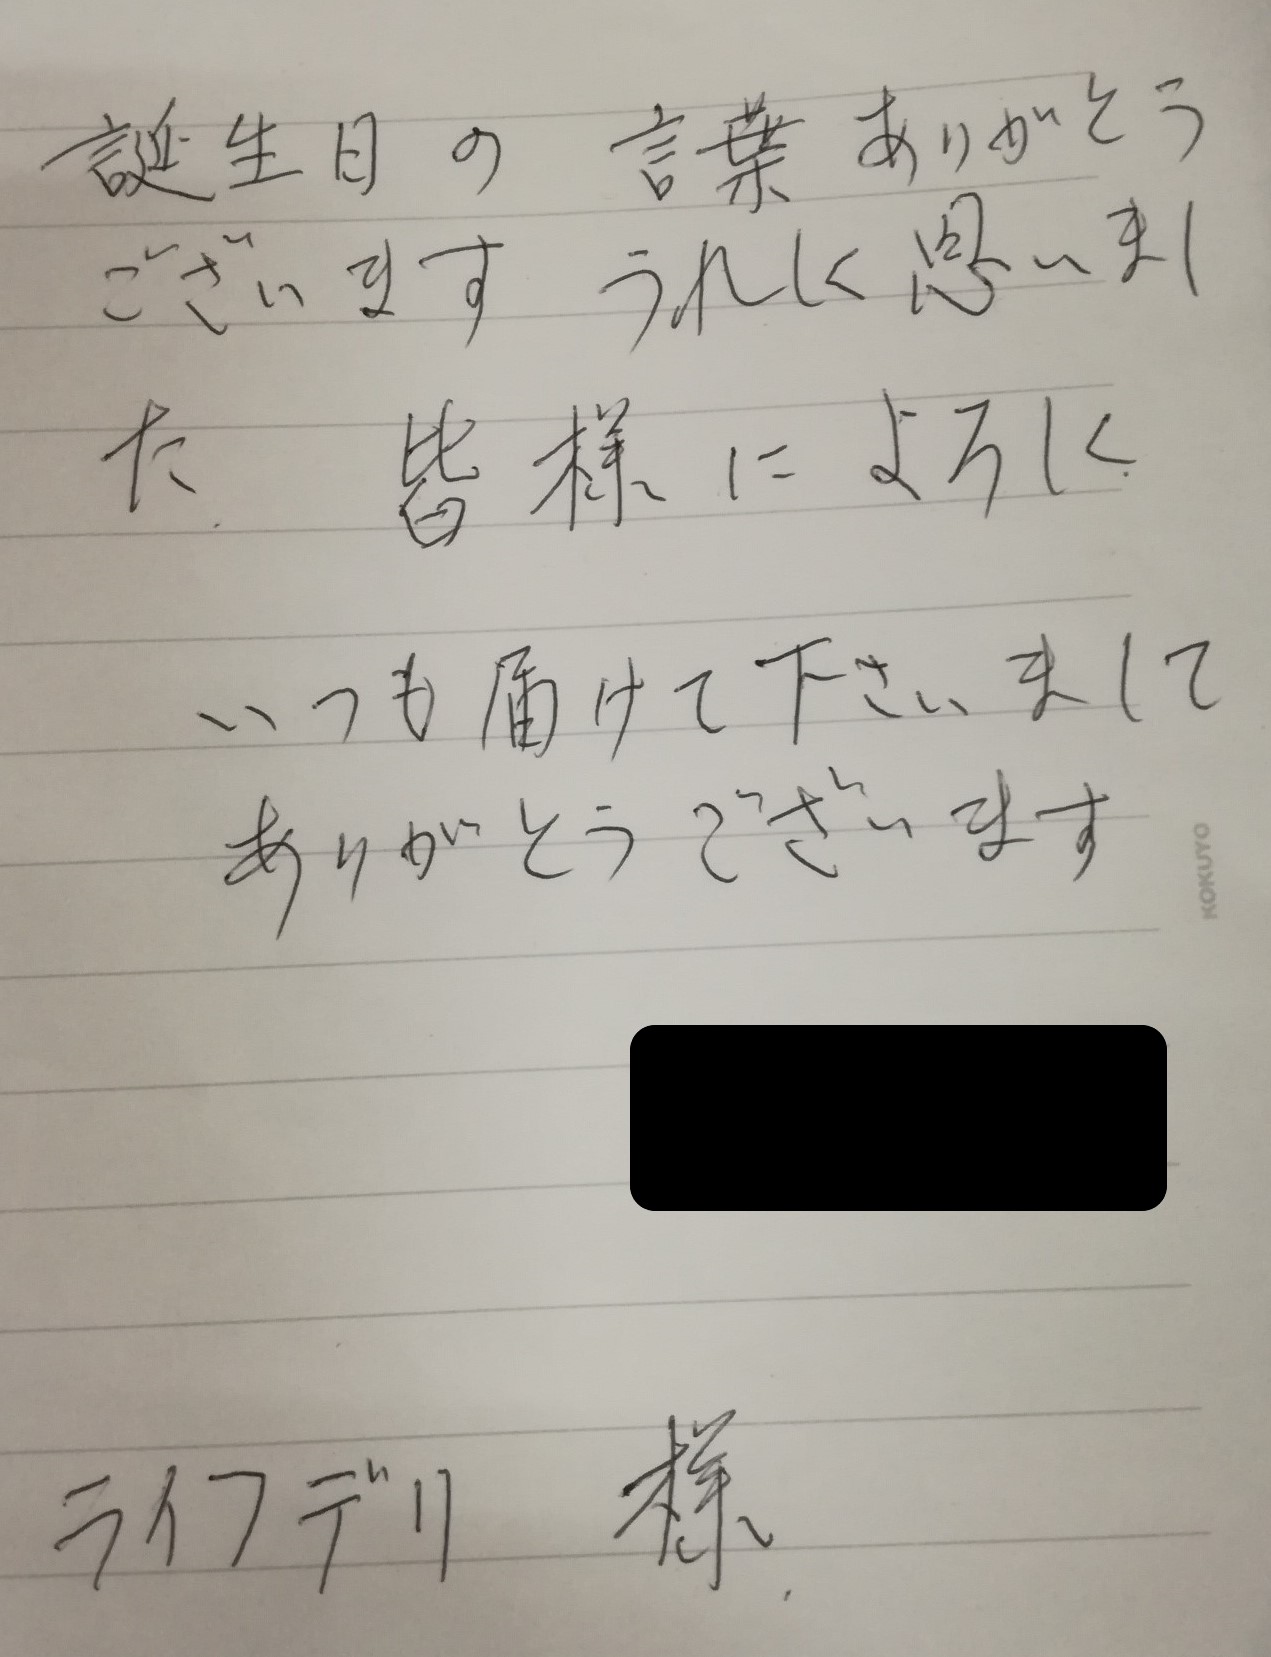 誕生日の 言葉ありがとう
ございます うれしく思いまし
た. 皆様によろしく.
いつも届けて下さいまして
ありがとうございます
KOKUYO
ライフデリ 様.